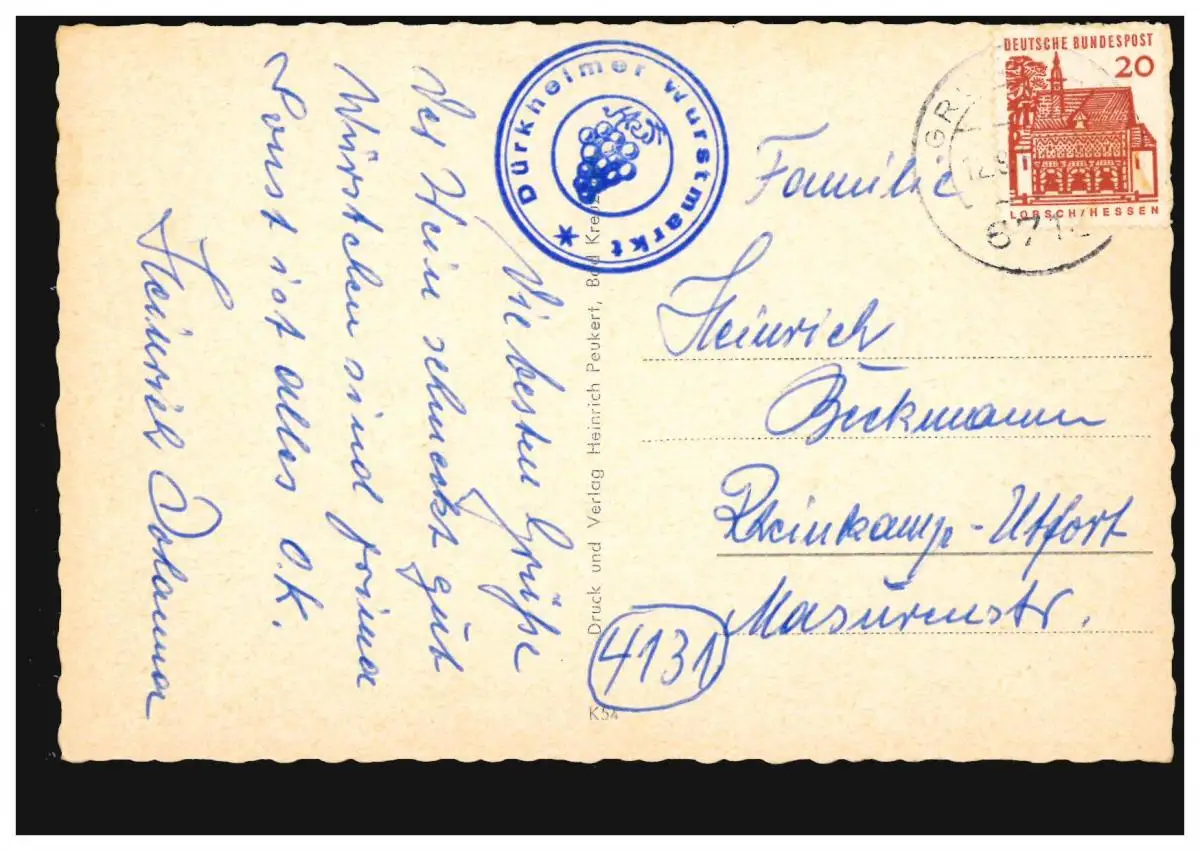 Die besten Grüße
Der Wein schmeckt gut
Würstchen sind prima
Sonst ist alles O.K.
Heinrich Johanna
* Dürkheimer Wurstmarkt
Druck und Verlag Heinrich Peukert, Bad Kreuz
K54
DEUTSCHE BUNDESPOST
20
LORSCH/HESSEN
GR
12.9
6712
Familie
Heinrich
Beckmann
4131
Rheinkamp-Utfort
Masurenstr.